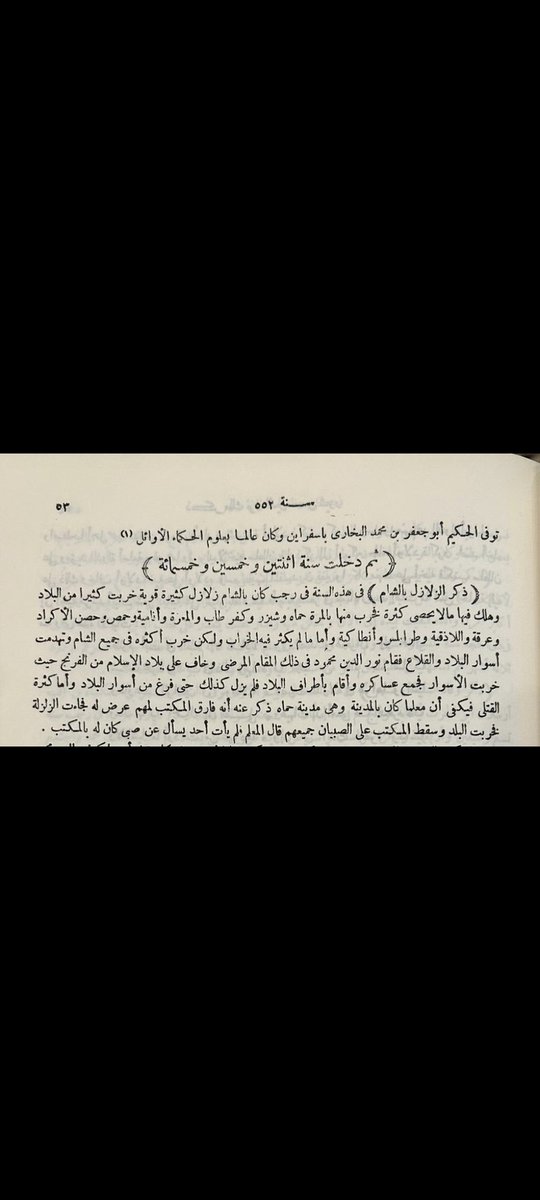 سنة ٥٥٢ ٥٣
توفى الحكيم أبو جعفر بن محمد البخارى باسفراين وكان عالما بعلوم الحكماء الأوائل (١)
﴿ثم دخلت سنة اثنتين وخمسين وخمسمائة﴾
﴿ذكر الزلازل بالشام﴾ فى هذه السنة فى رجب كان بالشام زلازل كثيرة قوية خربت كثيرا من البلاد
وهلك فيها مالا يحصى كثرة فخرب منها بالمرة حماه وشيزر وكفر طاب والمعرة وأفامية وحمص وحصن الأكراد
وعرقة واللاذقية وطرابلس وأنطاكية وأما ما لم يكثر فيه الخراب ولكن خرب أكثره فى جميع الشام وتهدمت
أسوار البلاد والقلاع فقام نور الدين محمود فى ذلك المقام المرضى وخاف على بلاد الإسلام من الفرنج حيث
خربت الأسوار فجمع عساكره وأقام بأطراف البلاد فلم يزل كذلك حتى فرغ من أسوار البلاد وأما كثرة
القتلى فيكفى أن معلما كان بالمدينة وهى مدينة حماه ذكر عنه أنه فارق المكتب لمهم عرض له فجاءت الزلزلة
فخربت البلد وسقط المكتب على الصبيان جميعهم قال المعلم فلم يأت أحد يسأل عن صبى كان له بالمكتب .